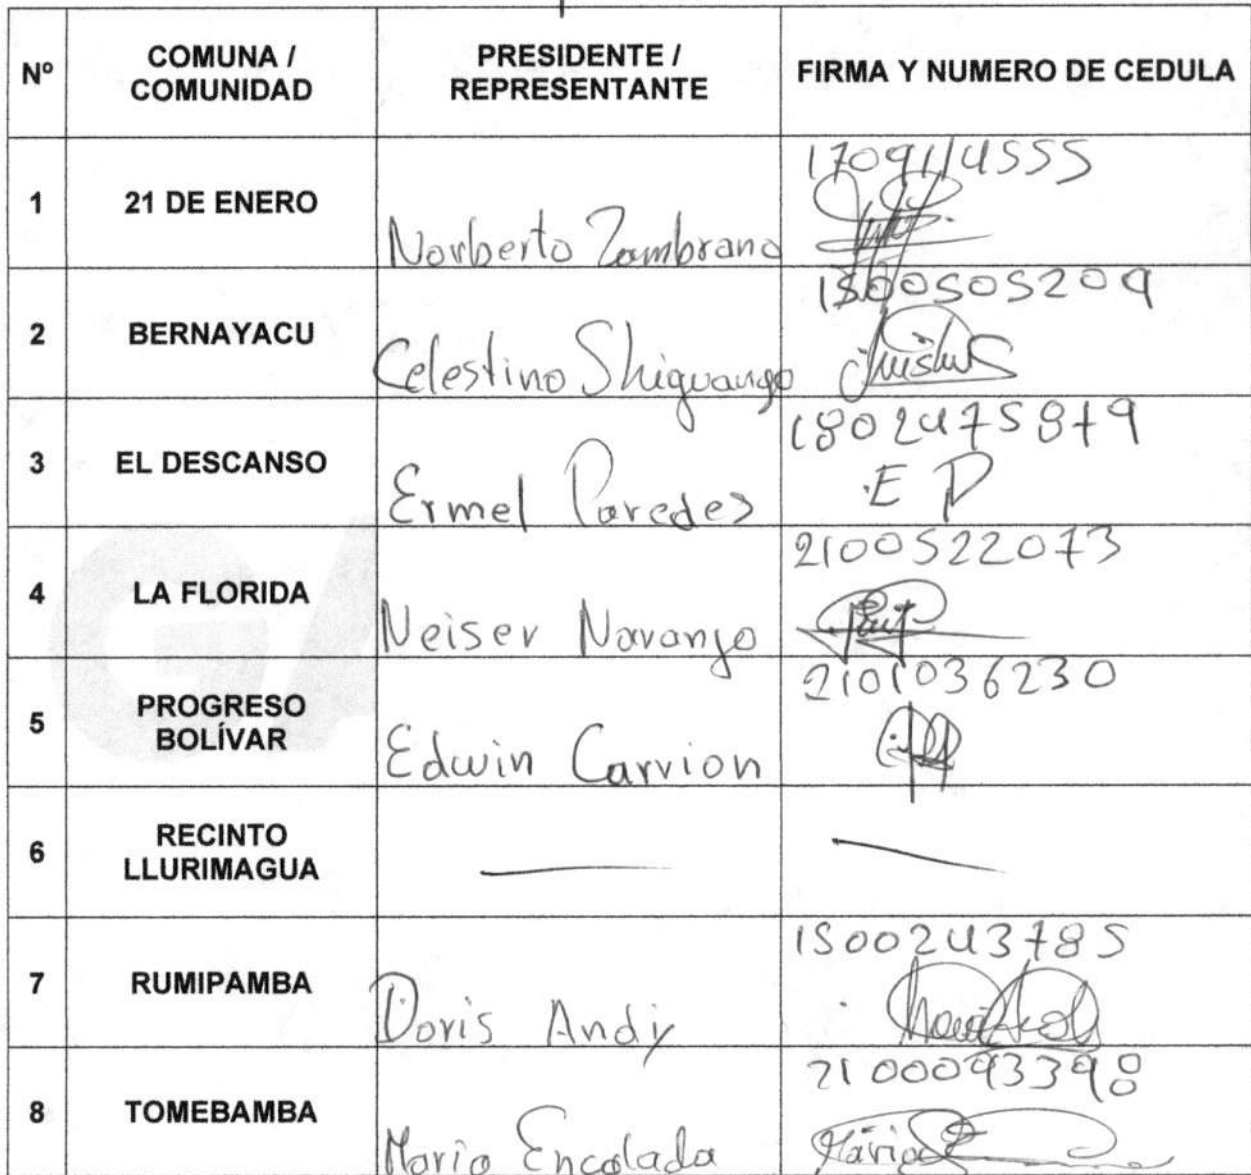 Nº
COMUNA /
COMUNIDAD
PRESIDENTE /
REPRESENTANTE
FIRMA Y NUMERO DE CEDULA
1
21 DE ENERO
Norberto Zambrano
1709114555
2
BERNAYACU
Celestino Shiguango
1500505209
3
EL DESCANSO
Ermel Paredes
1802475879
E P
4
LA FLORIDA
Neiser Naranjo
2100522073
5
PROGRESO
BOLÍVAR
Edwin Carrion
2101036230
6
RECINTO
LLURIMAGUA
7
RUMIPAMBA
Doris Andy
1500243785
8
TOMEBAMBA
Mario Encalada
2100093398
GA